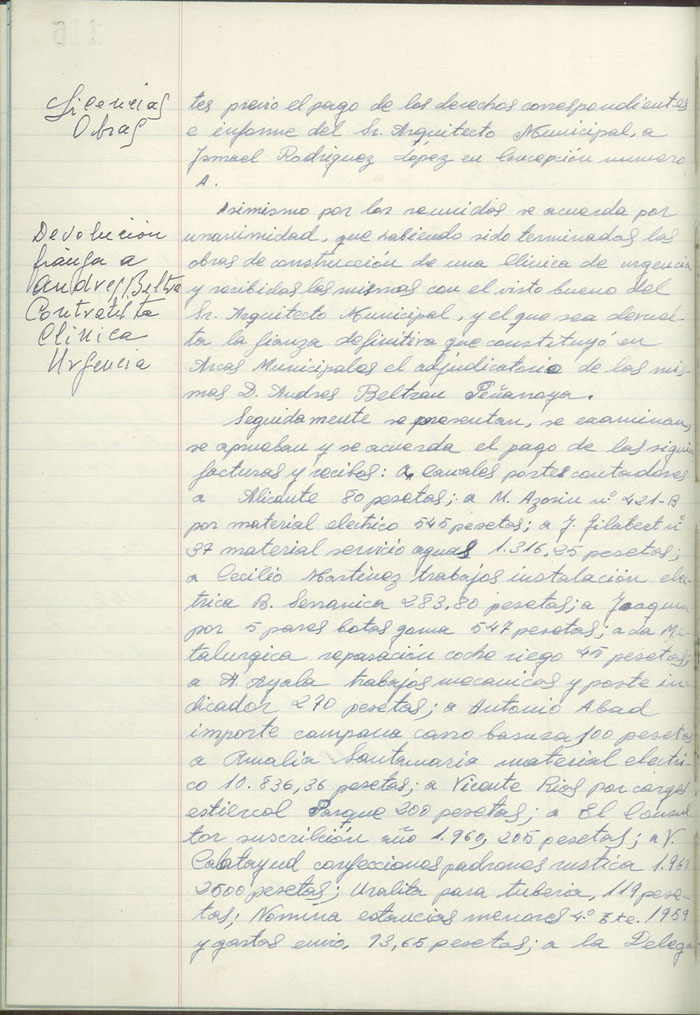 Licencias
Obras
tes previo el pago de los derechos correspondientes
e informe del Sr. Arquitecto Municipal, a
Ismael Rodriguez López en Concepción numero
A.
Devolución
fianza a
Andres Beltra
Contratista
Clinica
Urgencia
Asimismo por los reunidos se acuerda por
unanimidad, que habiendo sido terminadas las
obras de construcción de una Clinica de urgencia
y recibidas las mismas con el visto bueno del
Sr. Arquitecto Municipal, y el que sea devuel-
ta la fianza definitiva que constituyó en
Arcas Municipales el adjudicatario de las mis-
mas D. Andres Beltran Peñarroya.
Seguidamente se presentan, se examinan,
se aprueban y se acuerda el pago de las siguie
facturas y recibos: a Canales portes contadores
a Alicante 80 pesetas; a M. Azorin nº 421-B
por material electrico 545 pesetas; a J. Gilabert nº
37 material servicio aguas 1.316,25 pesetas;
a Cecilio Martinez trabajos instalación elec-
trica B. Serranica 283,80 pesetas; a Joaquin
por 5 pares botas goma 547 pesetas; a La Me-
talurgica reparación coche riego 45 pesetas;
a A. Ayala trabajos mecanicos y poste in-
dicador 270 pesetas; a Antonio Abad
importe campana carro basura 100 pesetas
a Amalia Santamaria material electri-
co 10.836,36 pesetas; a Vicente Rios por cargas
estiercol Parque 200 pesetas; a El Consul
tor suscribción año 1.960, 205 pesetas; a V.
Calatayud confecciones padrones rustica 1.961
2500 pesetas; Uralita para tuberia, 119 pese-
tas; Nomina estancias menores 4º Tte. 1959
y gastos envio, 73,65 pesetas; a la Delega